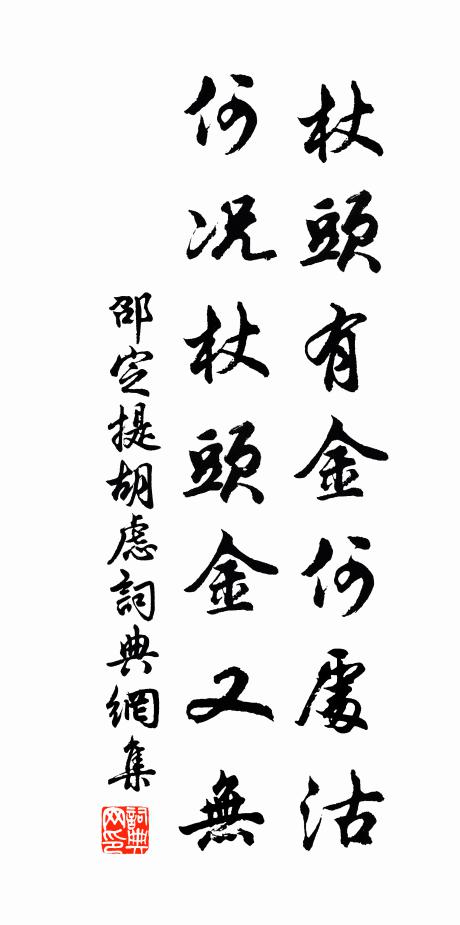 杖頭有金何處沽
何況杖頭金又無
邵定提胡慮詞典網集
詞典网印